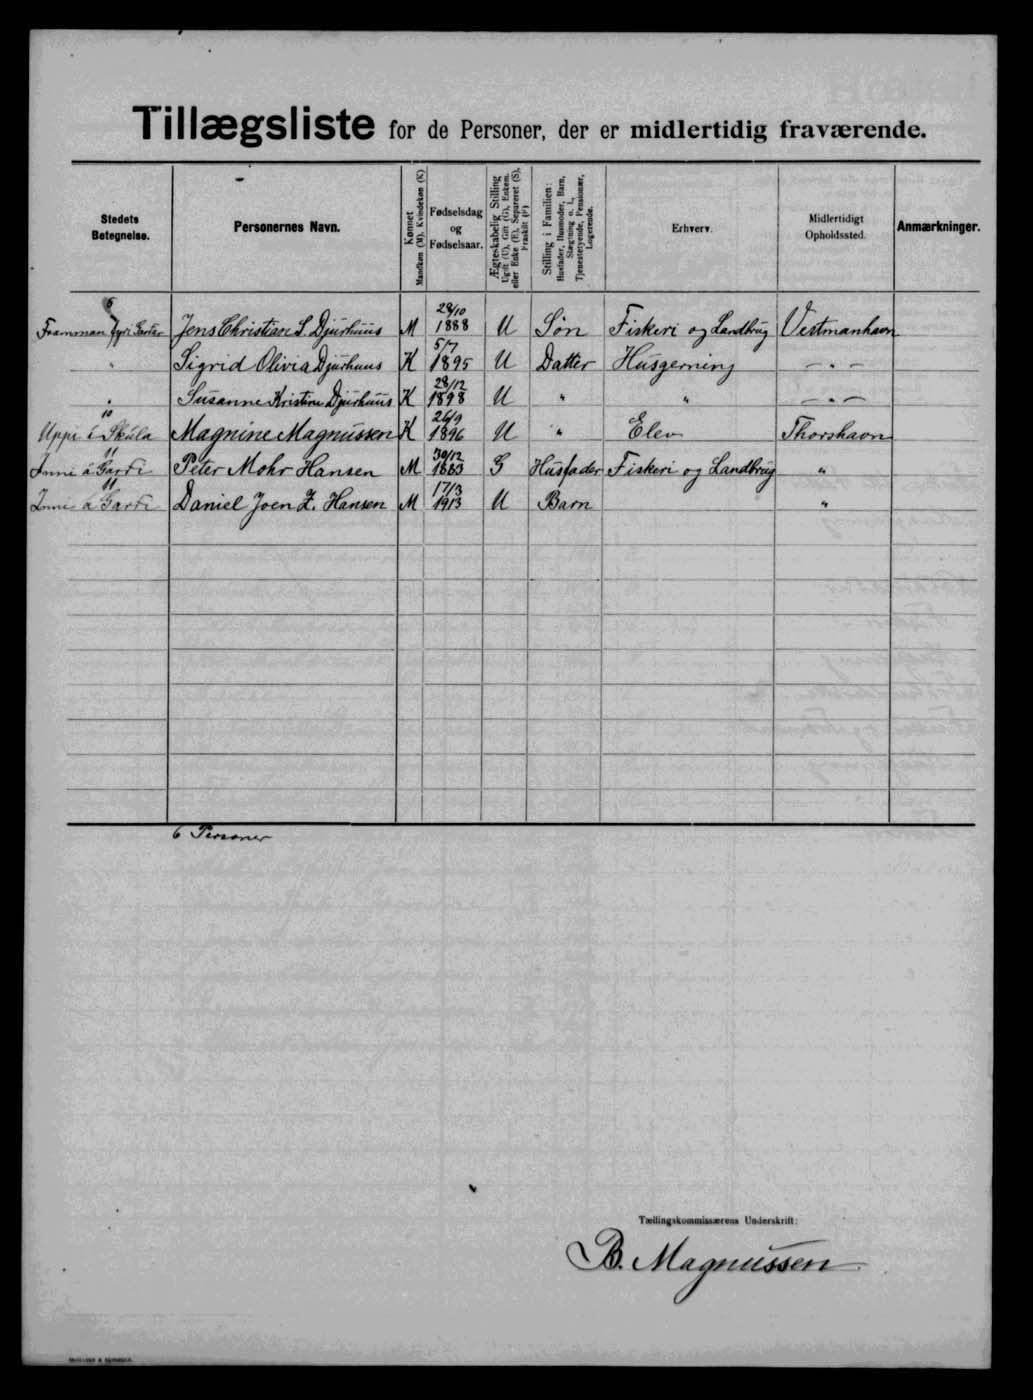 Tillægsliste for de Personer, der er midlertidig fraværende.
Stedets Betegnelse. | Personernes Navn. | Kønnet Mandkøn (M), Kvindekøn (K) | Fødselsdag og Fødselsaar. | Ægteskabelig Stilling Ugift (U), Gift (G), Enkem. eller Enke (E), Separeret (S), Fraskilt (F) | Stilling i Familien: Husfader, Husmoder, Barn, Slægtning o. l., Tjenestetyende, Pensionær, Logerende. | Erhverv. | Midlertidigt Opholdssted. | Anmærkninger.
6 Framman fyri Gartar | Jens Christian S. Djurhuus | M | 28/10 1888 | U | Søn | Fiskeri og Landbrug | Vestmanhavn
" | Sigrid Olivia Djurhuus | K | 5/7 1895 | U | Datter | Husgerning | — " —
" | Susanne Kristine Djurhuus | K | 28/12 1898 | U | " | " | — " —
10 Uppi í Skúla | Magnine Magnussen | K | 26/9 1896 | U | " | Elev | Thorshavn
11 Inni á Garði | Peter Mohr Hansen | M | 30/12 1883 | G | Husfader | Fiskeri og Landbrug | "
11 Inni á Garði | Daniel Joen Z. Hansen | M | 17/3 1913 | U | Barn | "
6 Personer
Tællingskommissærens Underskrift:
B. Magnussen